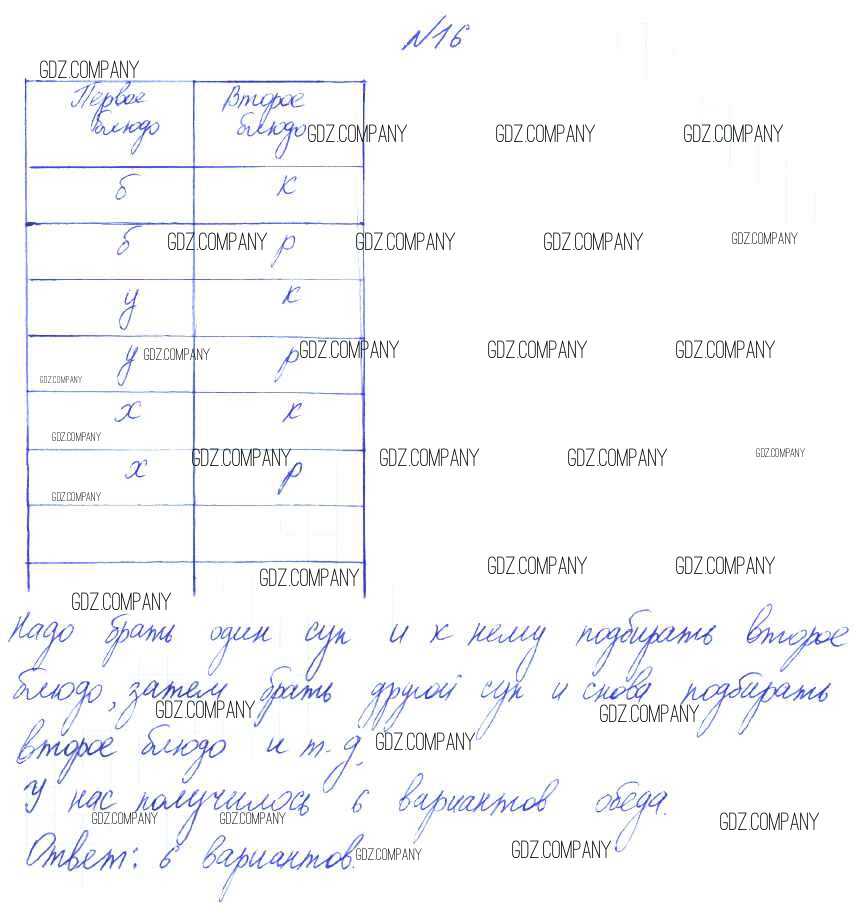 №16
GDZ.COMPANY
Первое блюдо | Второе блюдо
GDZ.COMPANY GDZ.COMPANY GDZ.COMPANY
б | к
б | р
GDZ.COMPANY GDZ.COMPANY GDZ.COMPANY GDZ.COMPANY
у | к
у | р
GDZ.COMPANY GDZ.COMPANY GDZ.COMPANY GDZ.COMPANY
GDZ.COMPANY
х | к
GDZ.COMPANY
х | р
GDZ.COMPANY GDZ.COMPANY GDZ.COMPANY GDZ.COMPANY
GDZ.COMPANY
GDZ.COMPANY GDZ.COMPANY GDZ.COMPANY
GDZ.COMPANY
Надо брать один суп и к нему подбирать второе
блюдо, затем брать другой суп и снова подбирать
GDZ.COMPANY GDZ.COMPANY
второе блюдо и т.д.
GDZ.COMPANY
У нас получилось 6 вариантов обеда.
GDZ.COMPANY GDZ.COMPANY GDZ.COMPANY
Ответ: 6 вариантов.
GDZ.COMPANY GDZ.COMPANY